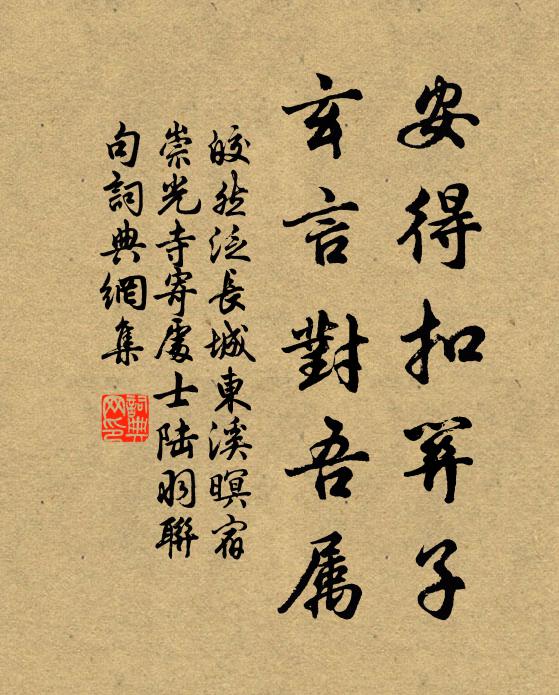 安得扣关子
玄言對吾属
皎然泛長城東溪暝宿
崇光寺寄處士陆羽聯
句詞典網集
詞典
网印